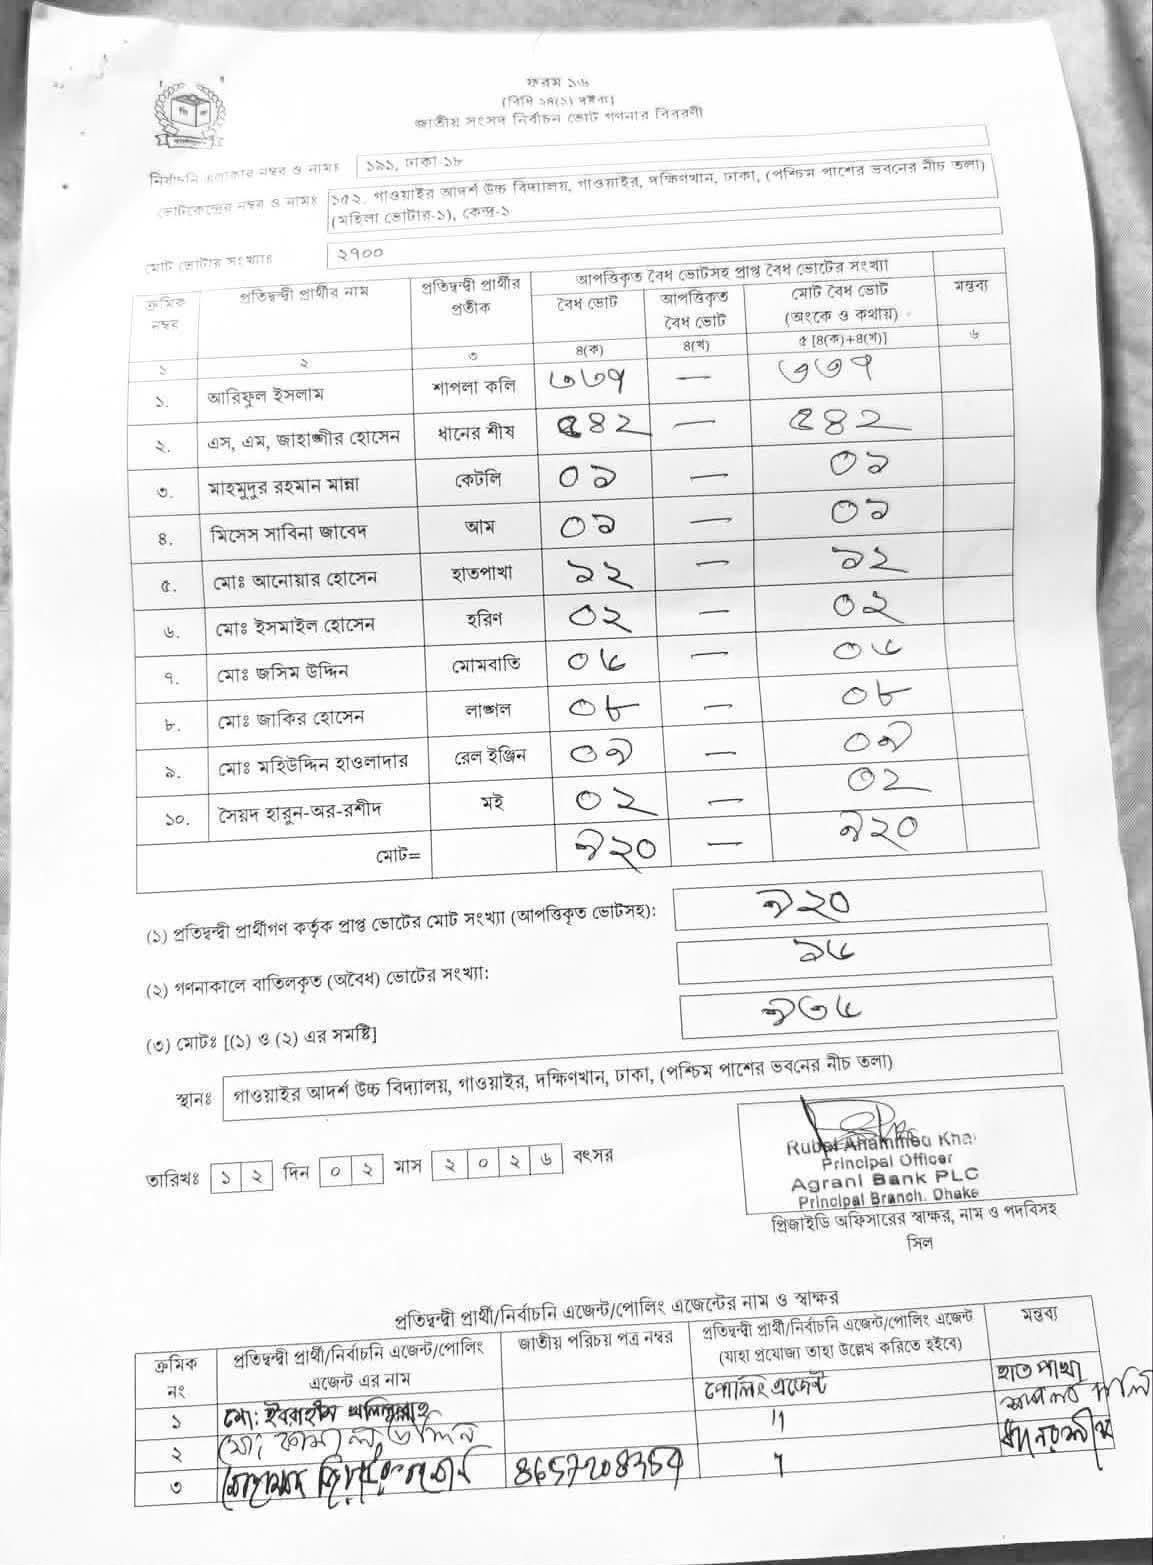 ফরম ১৬
[বিধি ২৪(১) দ্রষ্টব্য]
জাতীয় সংসদ নির্বাচন ভোট গণনার বিবরণী
নির্বাচনি এলাকার নম্বর ও নামঃ ১৯১, ঢাকা-১৮
ভোটকেন্দ্রের নম্বর ও নামঃ ১৫২. গাওয়াইর আদর্শ উচ্চ বিদ্যালয়, গাওয়াইর, দক্ষিণখান, ঢাকা, (পশ্চিম পাশের ভবনের নীচ তলা)
(মহিলা ভোটার-১), কেন্দ্র-১
মোট ভোটার সংখ্যাঃ ২৭০০
ক্রমিক নম্বর প্রতিদ্বন্দ্বী প্রার্থীর নাম প্রতিদ্বন্দ্বী প্রার্থীর প্রতীক আপত্তিকৃত বৈধ ভোটসহ প্রাপ্ত বৈধ ভোটের সংখ্যা মন্তব্য
বৈধ ভোট আপত্তিকৃত বৈধ ভোট মোট বৈধ ভোট (অংকে ও কথায়)
১ ২ ৩ ৪(ক) ৪(খ) ৫ [৪(ক)+৪(খ)] ৬
১. আরিফুল ইসলাম শাপলা কলি ৩৩৭ — ৩৩৭
২. এস, এম, জাহাঙ্গীর হোসেন ধানের শীষ ৫৪২ — ৫৪২
৩. মাহমুদুর রহমান মান্না কেটলি ০১ — ০১
৪. মিসেস সাবিনা জাবেদ আম ০১ — ০১
৫. মোঃ আনোয়ার হোসেন হাতপাখা ১২ — ১২
৬. মোঃ ইসমাইল হোসেন হরিণ ০২ — ০২
৭. মোঃ জসিম উদ্দিন মোমবাতি ০৬ — ০৬
৮. মোঃ জাকির হোসেন লাঙ্গল ০৮ — ০৮
৯. মোঃ মহিউদ্দিন হাওলাদার রেল ইঞ্জিন ০৯ — ০৯
১০. সৈয়দ হারুন-অর-রশীদ মই ০২ — ০২
মোট= ৯২০ — ৯২০
(১) প্রতিদ্বন্দ্বী প্রার্থীগণ কর্তৃক প্রাপ্ত ভোটের মোট সংখ্যা (আপত্তিকৃত ভোটসহ): ৯২০
(২) গণনাকালে বাতিলকৃত (অবৈধ) ভোটের সংখ্যা: ১৬
(৩) মোটঃ [(১) ও (২) এর সমষ্টি] ৯৩৬
স্থানঃ গাওয়াইর আদর্শ উচ্চ বিদ্যালয়, গাওয়াইর, দক্ষিণখান, ঢাকা, (পশ্চিম পাশের ভবনের নীচ তলা)
তারিখঃ ১২ দিন ০২ মাস ২০২৬ বৎসর
Rubel Ahammed Kha
Principal Officer
Agrani Bank PLC
Principal Branch. Dhaka
প্রিজাইডি অফিসারের স্বাক্ষর, নাম ও পদবিসহ
সিল
প্রতিদ্বন্দ্বী প্রার্থী/নির্বাচনি এজেন্ট/পোলিং এজেন্টের নাম ও স্বাক্ষর
ক্রমিক নং প্রতিদ্বন্দ্বী প্রার্থী/নির্বাচনি এজেন্ট/পোলিং এজেন্ট এর নাম জাতীয় পরিচয় পত্র নম্বর প্রতিদ্বন্দ্বী প্রার্থী/নির্বাচনি এজেন্ট/পোলিং এজেন্ট (যাহা প্রযোজ্য তাহা উল্লেখ করিতে হইবে) মন্তব্য
১ মো: ইবরাহীম খলিলুল্লাহ পোলিং এজেন্ট হাত পাখা
২ মো: কামাল উদ্দিন " শাপলা কলি
৩ 8657208359 " ধানের শীষ